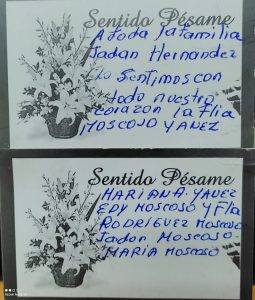 Sentido Pésame
A toda la familia
Jadan Hernandez
Lo Sentimos con
todo nuestro
corazon la Flia
MOSCOSO YANEZ
Sentido Pésame
MARIAN A. YANEZ
EDY MOSCOSO Y Flia
RODRIGUEZ MOSCOSO
Jadan MOSCOSO
MARIA MOSCOSO